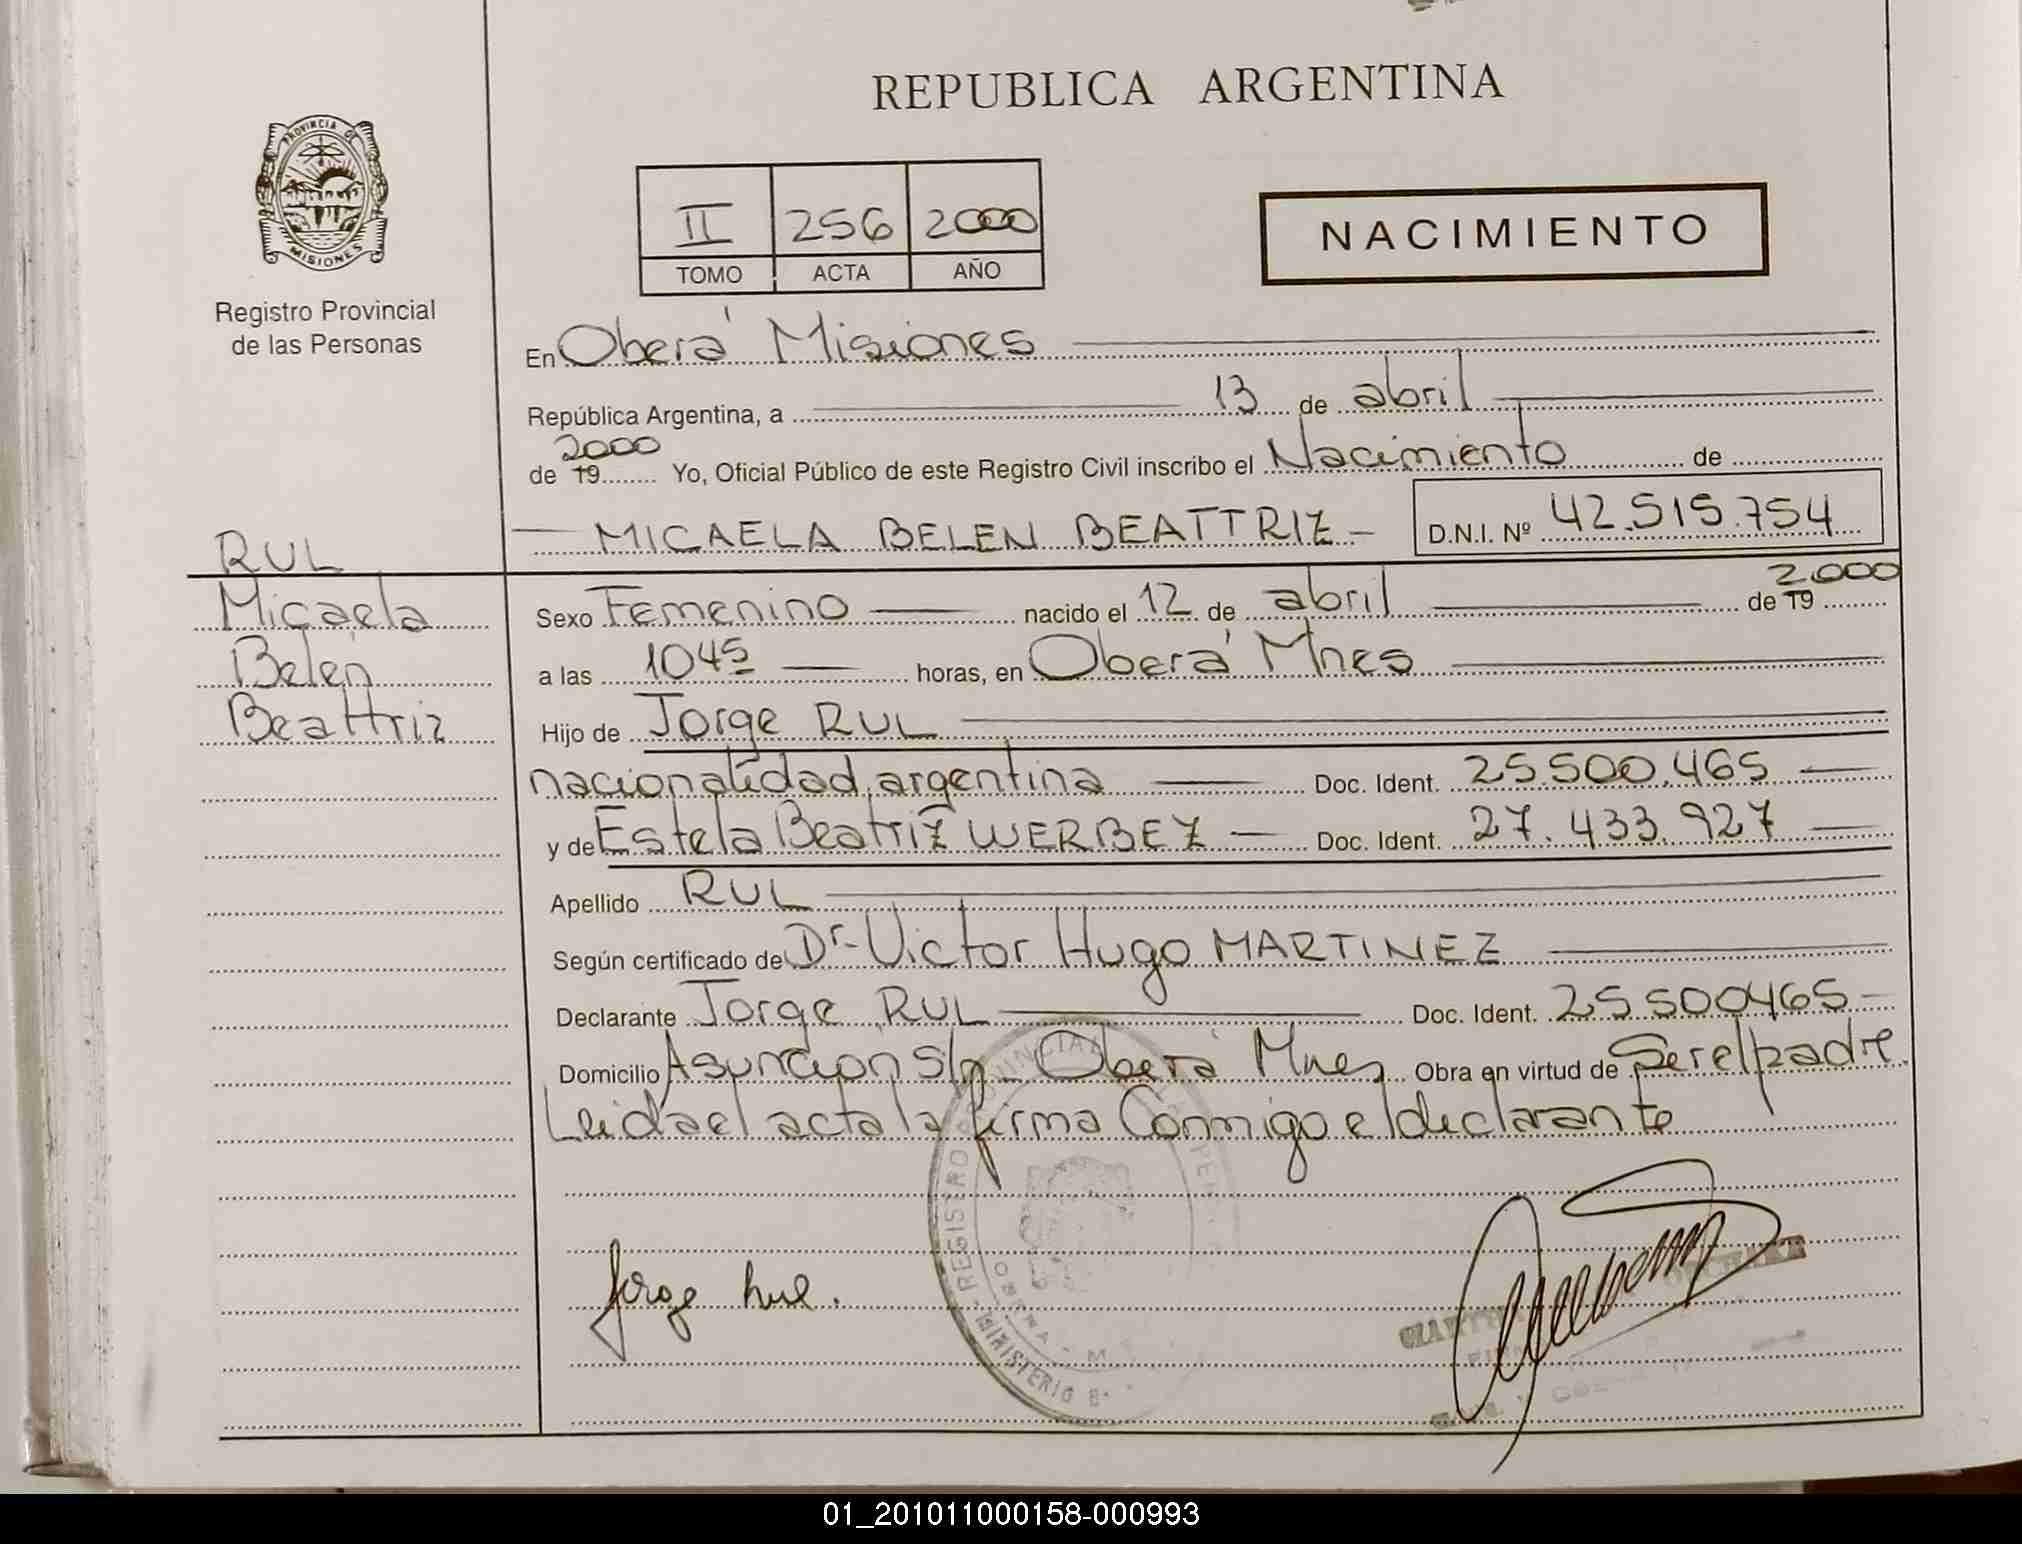 REPUBLICA ARGENTINA
PROVINCIA DE
MISIONES
Registro Provincial
de las Personas
II 256 2000
TOMO ACTA AÑO
NACIMIENTO
En Oberá Misiones
República Argentina, a 13 de abril
2000
de 19 Yo, Oficial Público de este Registro Civil inscribo el Nacimiento de
MICAELA BELEN BEATTRIZ D.N.I. Nº 42.515.754
RUL
Micaela
Belén
Beattriz
2.000
Sexo Femenino nacido el 12 de abril de 19
a las 1045 horas, en Oberá Mnes
Hijo de Jorge RUL
nacionalidad argentina Doc. Ident. 25.500.465
y de Estela Beatriz WERBEZ Doc. Ident. 27.433.927
Apellido RUL
Según certificado de Dr. Victor Hugo MARTINEZ
Declarante Jorge RUL Doc. Ident. 25500465
Domicilio Asuncion S/n Oberá Mnes Obra en virtud de Ser el padre
Leida el acta la firma Conmigo el declarante
Jorge Rul.
REGISTRO PROVINCIAL
MINISTERIO
01_201011000158-000993